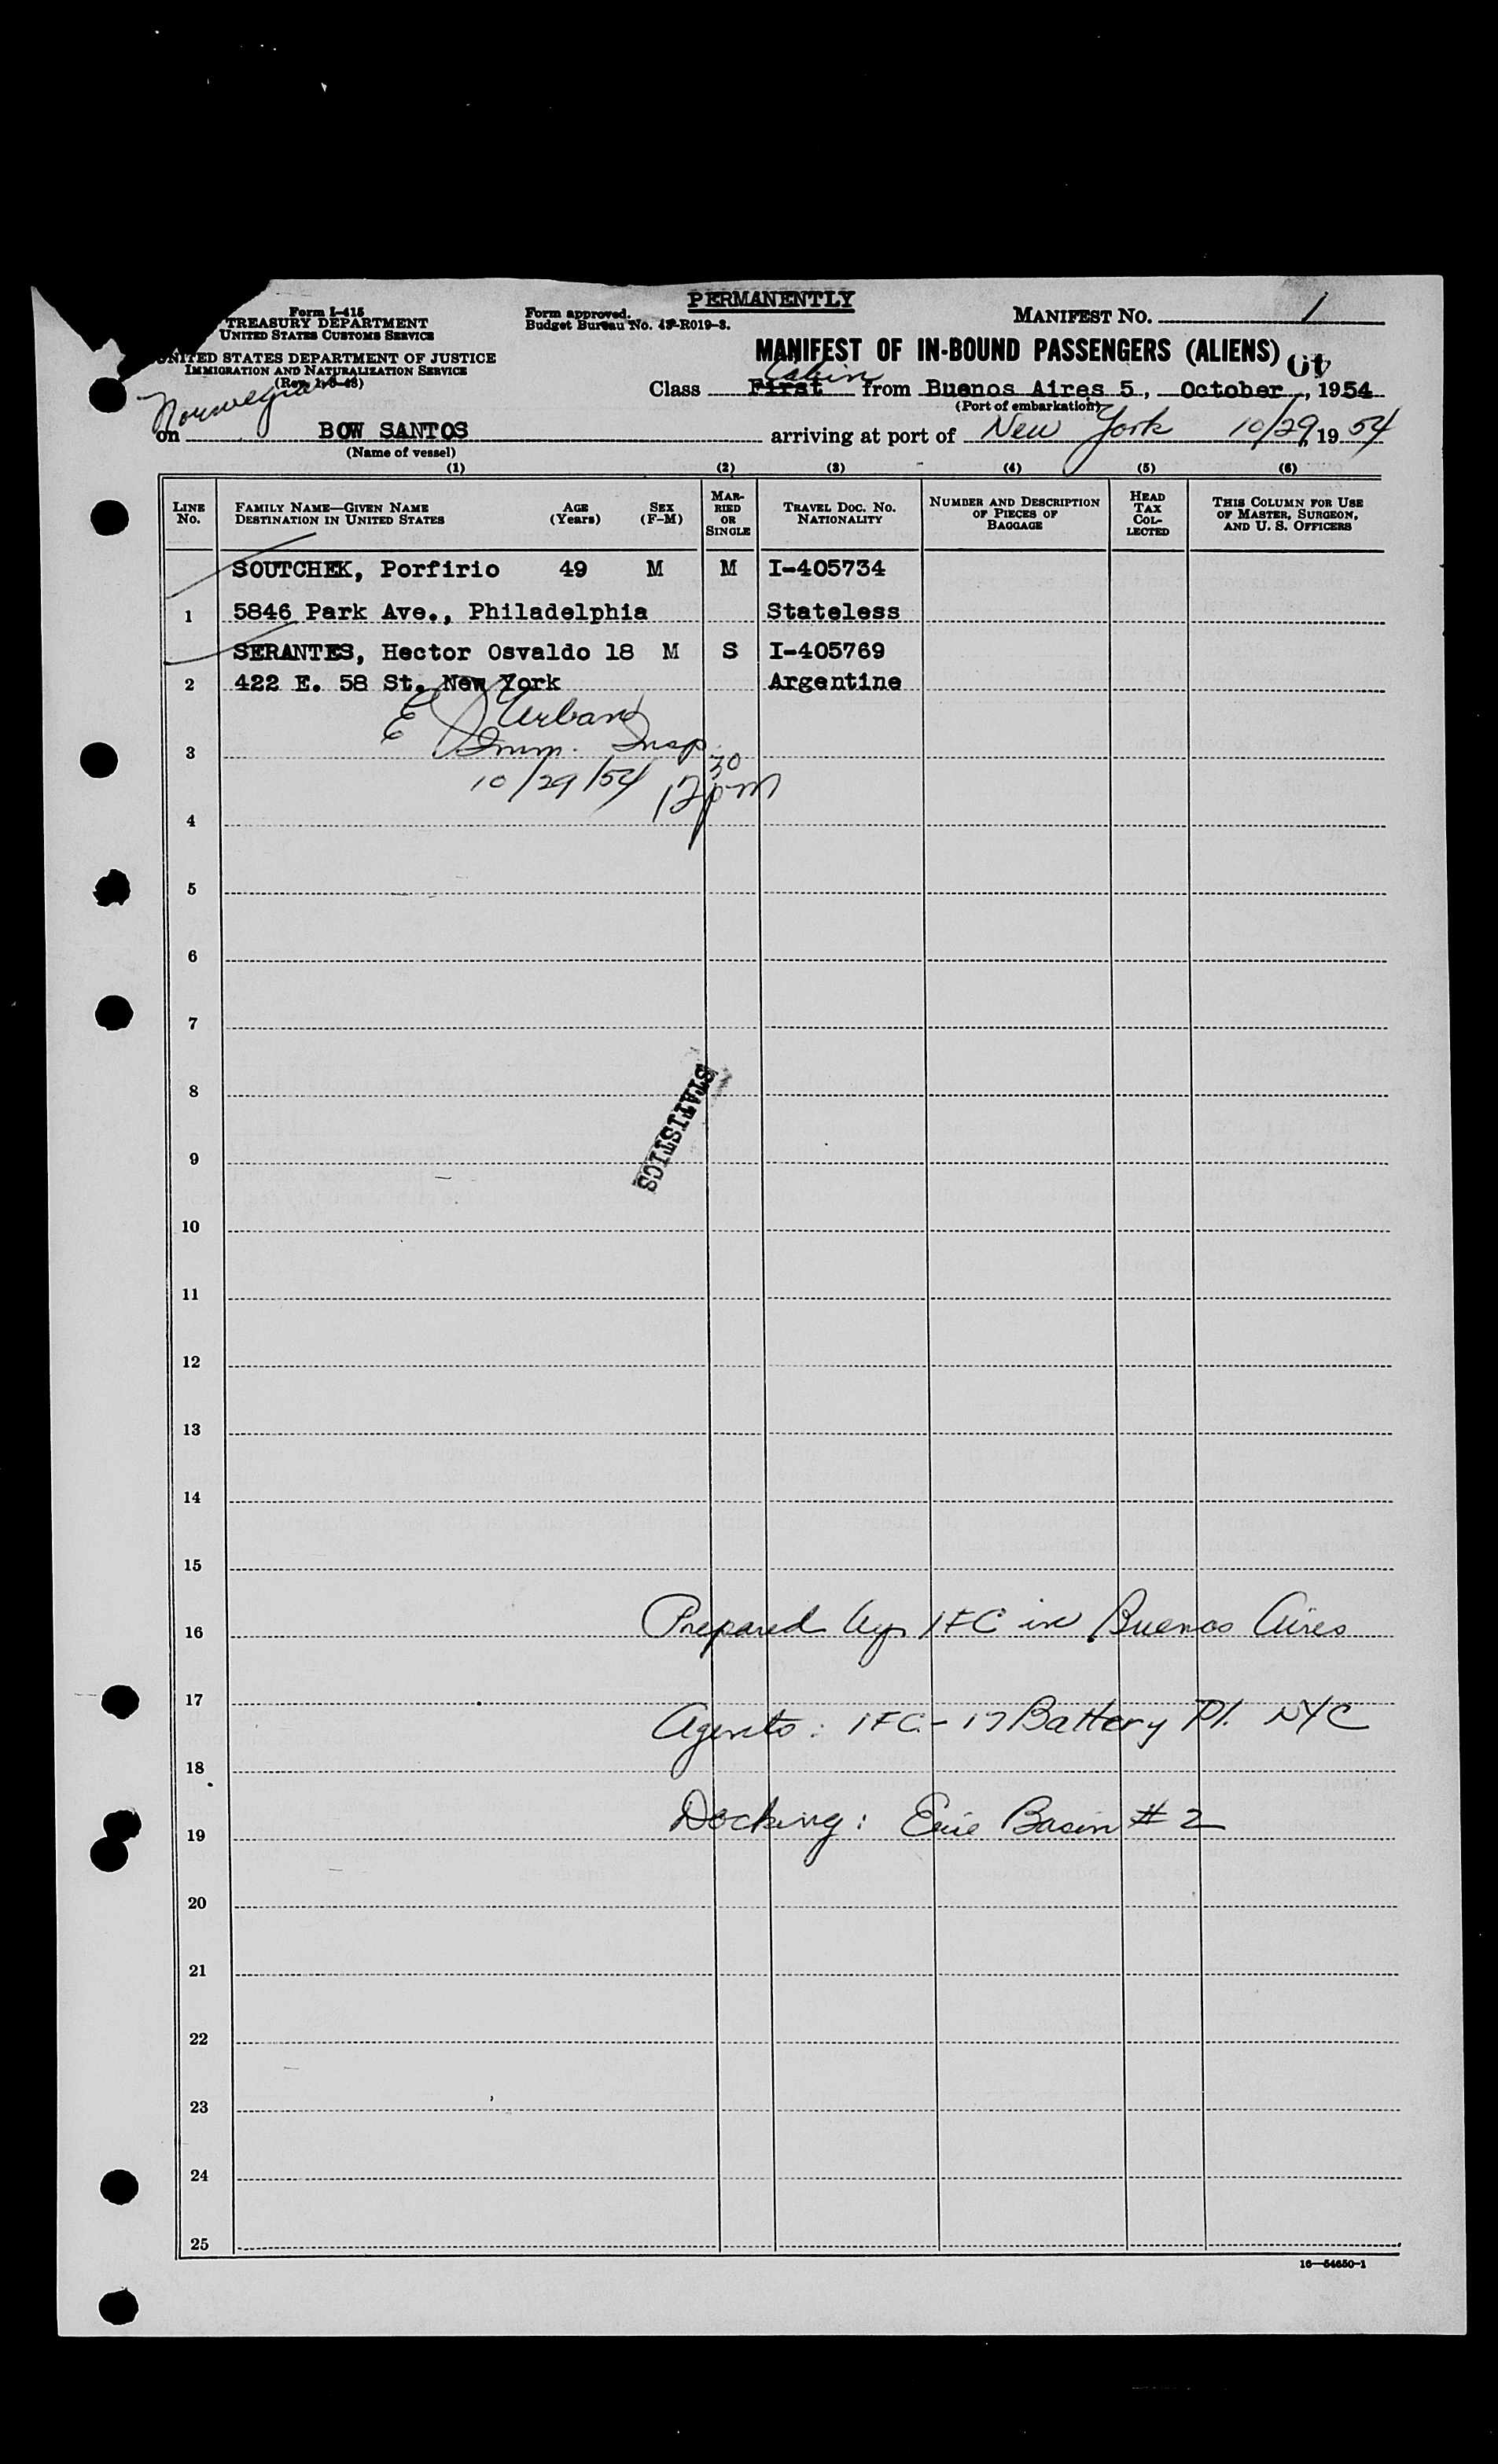 PERMANENTLY
Form I-415
TREASURY DEPARTMENT
UNITED STATES CUSTOMS SERVICE
UNITED STATES DEPARTMENT OF JUSTICE
IMMIGRATION AND NATURALIZATION SERVICE
Form approved.
Budget Bureau No. 43-R019-3.
MANIFEST NO. 1
MANIFEST OF IN-BOUND PASSENGERS (ALIENS)
Cabin
Class First from Buenos Aires 5, October, 1954
(Port of embarkation)
Norwegian
on BOW SANTOS arriving at port of New York 10/29, 1954
(Name of vessel)
(1) (2) (3) (4) (5) (6)
LINE No. FAMILY NAME—GIVEN NAME DESTINATION IN UNITED STATES AGE (Years) SEX (F-M) MARRIED OR SINGLE TRAVEL DOC. NO. NATIONALITY NUMBER AND DESCRIPTION OF PIECES OF BAGGAGE HEAD TAX COLLECTED THIS COLUMN FOR USE OF MASTER, SURGEON, AND U. S. OFFICERS
SOUTCHEK, Porfirio 49 M M I-405734
1 5846 Park Ave., Philadelphia Stateless
SERANTES, Hector Osvaldo 18 M S I-405769
2 422 E. 58 St. New York Argentine
E J Urband
3 Imm. Insp.
10/29/54 12 30 pm
4
5
6
7
8
STATISTICS
9
10
11
12
13
14
15
16 Prepared by IFC in Buenos Aires
17
Agents: IFC - 17 Battery Pl. NYC
18
19 Docking: Erie Basin # 2
20
21
22
23
24
25
16—54650-1